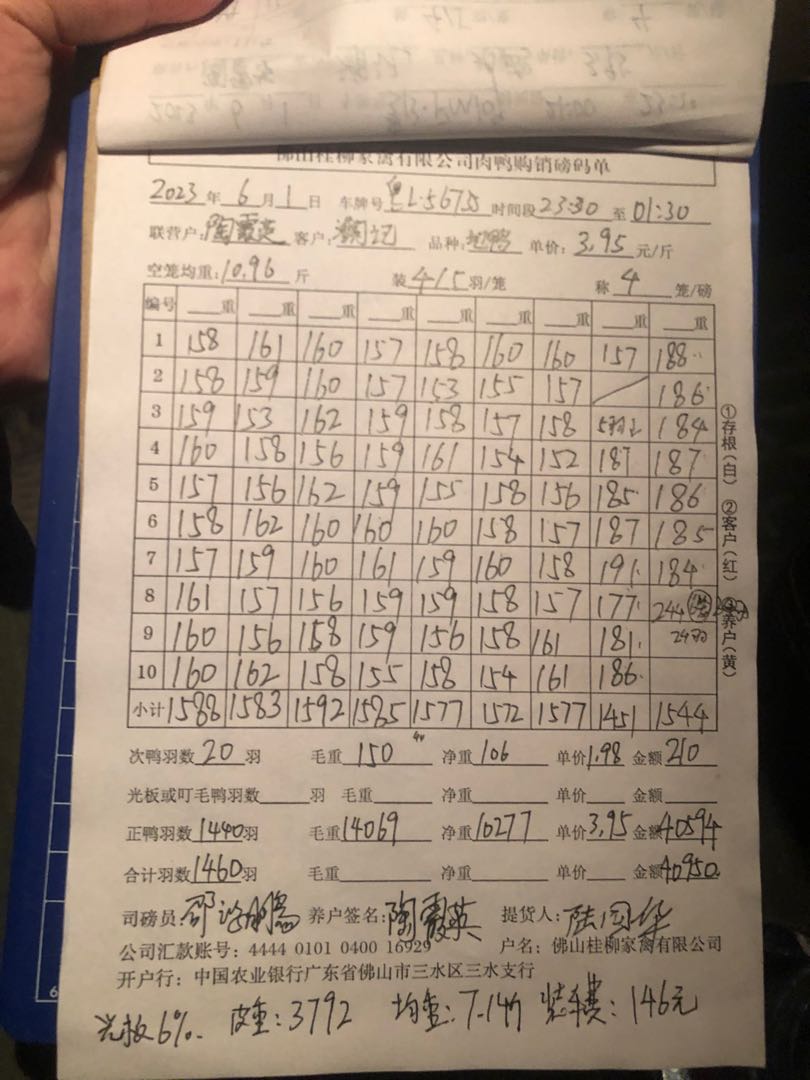 佛山桂柳家禽有限公司肉鸭购销磅码单
2023年6月1日 车牌号 粤L·567 时间段23:30至01:30
联营户:陶霞英 客户: 记 品种: 鸭 单价:3.95元/斤
空笼均重:10.96斤 装4/5羽/笼 称4笼/磅
编号 重 重 重 重 重 重 重 重 重
1 158 161 160 157 158 160 160 157 188
2 158 159 160 157 153 155 157 / 186
3 159 153 162 159 158 157 158 5羽 184
4 160 158 156 159 161 154 152 187 187
5 157 156 162 159 155 158 156 185 186
6 158 162 160 160 160 158 157 187 185
7 157 159 160 161 159 160 158 191 184
8 161 157 156 159 159 158 157 177 244
9 160 156 158 159 156 158 161 181 24羽
10 160 162 158 155 158 154 161 186
小计 1588 1583 1592 1585 1577 1572 1577 1451 1544
①存根(白) ②客户(红) ③养户(黄)
次鸭羽数20羽 毛重150 净重106 单价1.98 金额210
光板或叮毛鸭羽数 羽 毛重 净重 单价 金额
正鸭羽数1440羽 毛重14069 净重10277 单价3.95 金额40594
合计羽数1460羽 毛重 净重 单价 金额40950
司磅员: 养户签名:陶霞英 提货人:陆国华
公司汇款账号:4444 0101 0400 16929 户名:佛山桂柳家禽有限公司
开户行:中国农业银行广东省佛山市三水区三水支行
光板6%. 皮重:3792 均重:7.14斤 装车费:146元